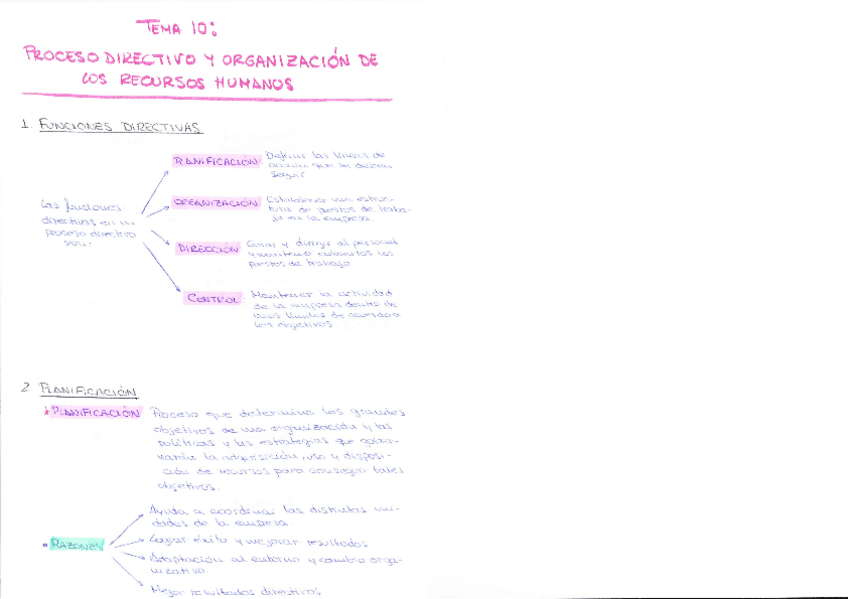 TEMA 10:
PROCESO DIRECTIVO Y ORGANIZACIÓN DE
LOS RECURSOS HUMANOS
1. FUNCIONES DIRECTIVAS
Las funciones
directivas en un
proceso directivo
son:
PLANIFICACIÓN Definir las líneas de
acción que se deben
seguir
ORGANIZACIÓN Establecer una estruc-
tura de puestos de traba-
jo en la empresa
DIRECCIÓN Guiar y dirigir al personal
y mantener cubiertos los
puestos de trabajo
CONTROL Mantener la actividad
de la empresa dentro de
unos límites de acuerdo a
los objetivos.
2 PLANIFICACIÓN
PLANIFICACIÓN Proceso que determina los grandes
objetivos de una organización y las
políticas y las estrategias que gober-
narán la adquisición, uso y disposi-
ción de recursos para conseguir tales
objetivos.
RAZONES
Ayuda a coordinar las distintas uni-
dades de la empresa.
Lograr éxito y mejorar resultados
Adaptación al entorno y cambio orga-
nizativo.
Mejor resultados directivos